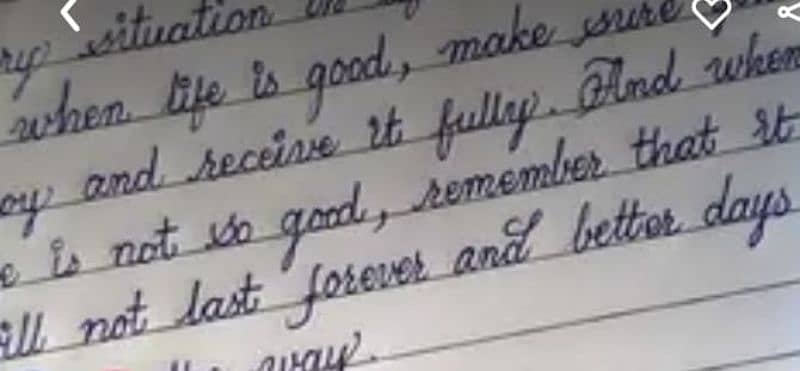 ry situation
when life is good, make sure
oy and receive it fully. And when
e is not so good, remember that it
ill not last forever and better days
way.